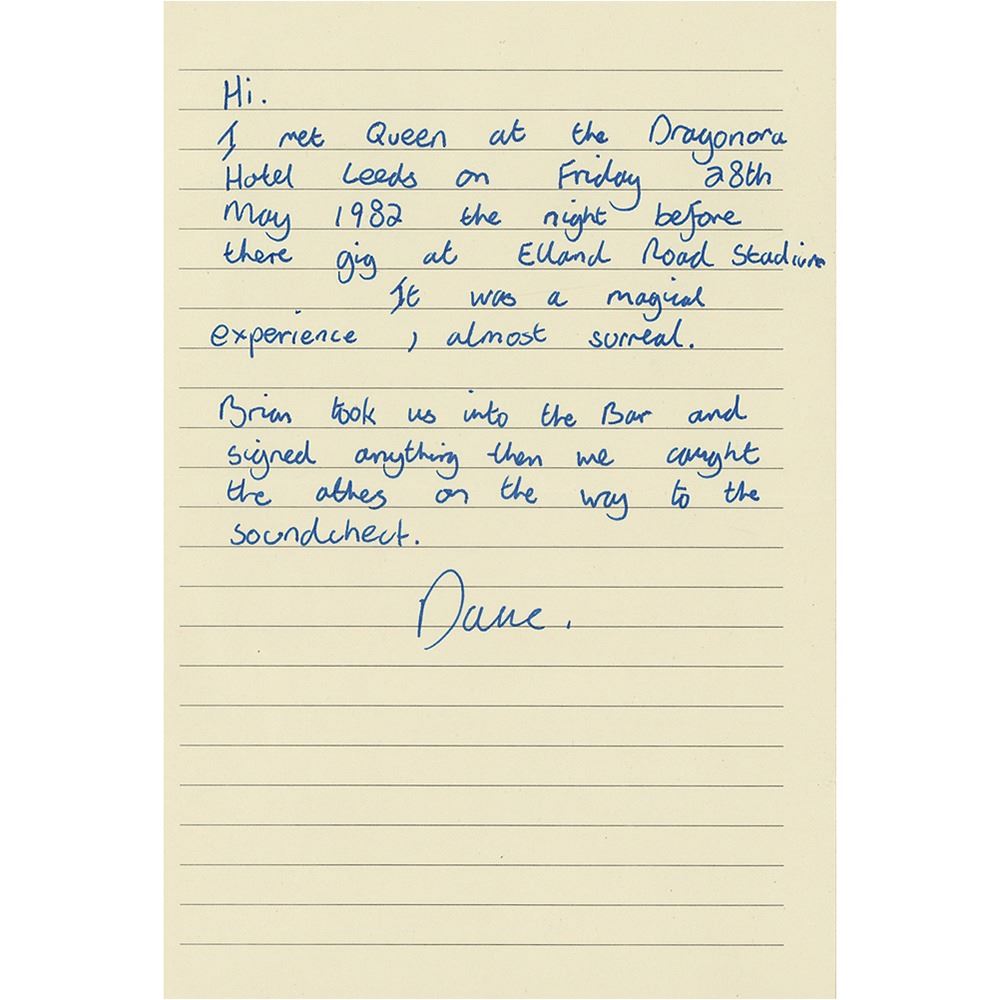 Hi.
I met Queen at the Dragonara
Hotel Leeds on Friday 28th
May 1982 the night before
there gig at Elland Road Stadium
It was a magical
experience, almost surreal.
Brian took us into the Bar and
signed anything then we caught
the others on the way to the
soundcheck.
Dave.